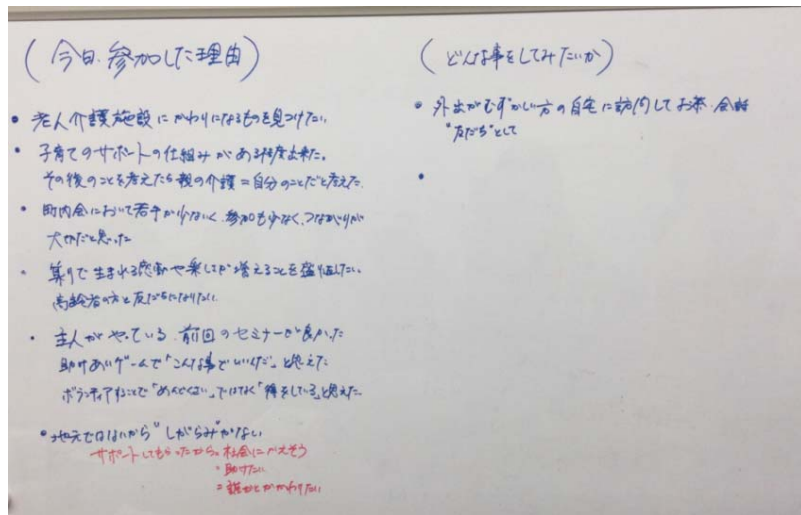 (今日、参加した理由)
• 老人介護施設にかわりになるものを見つけたい
• 子育てのサポートの仕組みがある程度出来た。
その後のことを考えたら親の介護=自分のことだと考えた
• 町内会において若手が少ないく、参加も少なく、つながりが
大切だと思った
• 集りで生まれる感動や楽しさが増えることを
高齢者の方と友だちになりたい
• 主人がやっている、前回のセミナーが良かった
助けあいゲームで「こんな事でいいんだ」と思えた
ボランティアすることで「めんどくさい」ではなく「得をしている」と思えた
• 地元ではないから"しがらみ"がない
サポートしてもらったから。社会にかえそう
・助けたい
=誰かとかかわりたい
(どんな事をしてみたいか)
• 外出がむずかしい方の自宅に訪問してお茶・会話
"友だち"として
•